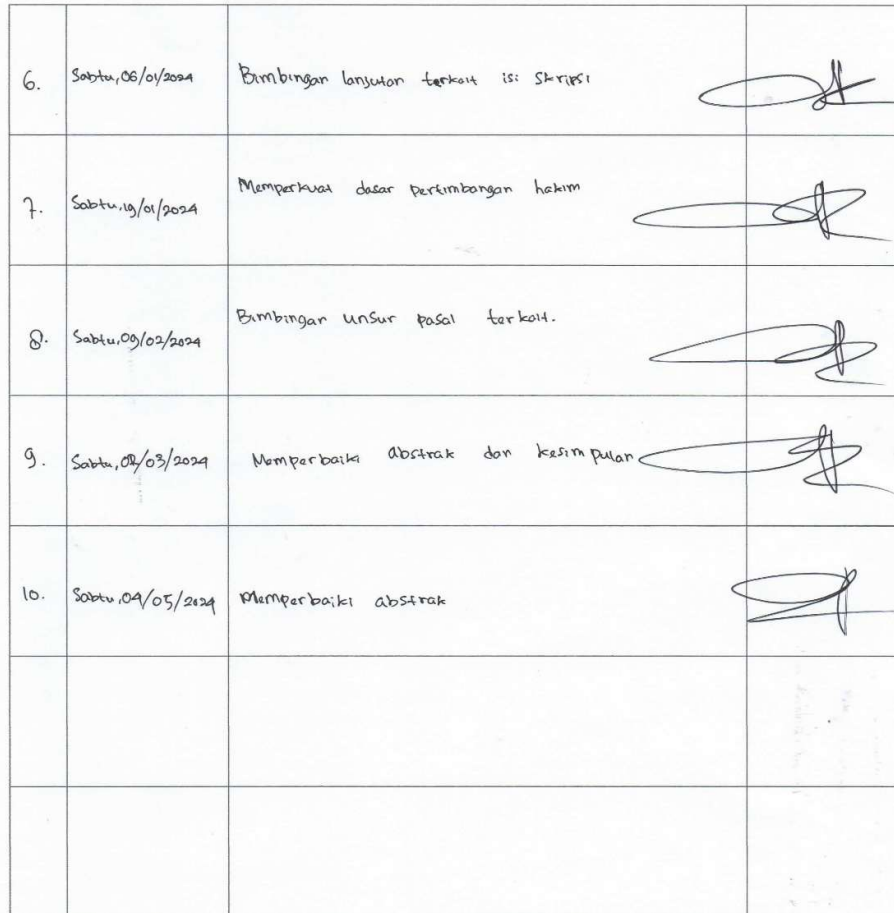 6. Sabtu, 06/01/2024 Bimbingan lanjutan terkait isi skripsi
7. Sabtu, 19/01/2024 Memperkuat dasar pertimbangan hakim
8. Sabtu, 09/02/2024 Bimbingan unsur pasal terkait.
9. Sabtu, 02/03/2024 Memperbaiki abstrak dan kesimpulan
10. Sabtu, 04/05/2024 Memperbaiki abstrak